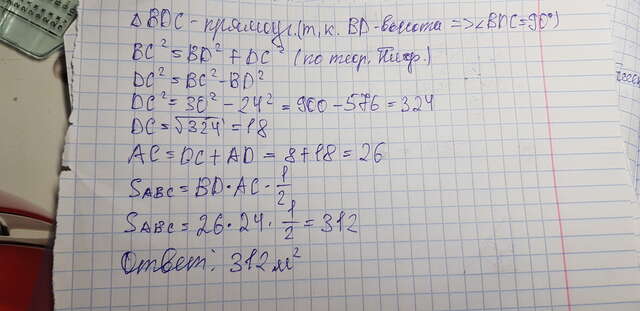 △BDC - прямоуг. (т.к. BD - высота => ∠BDC = 90°)
BC² = BD² + DC² (по теор. Пифр.)
DC² = BC² - BD²
DC² = 30² - 24² = 900 - 576 = 324
DC = √324 = 18
AC = DC + AD = 8 + 18 = 26
SABC = BD · AC · 1/2
SABC = 26 · 24 · 1/2 = 312
Ответ: 312 м²